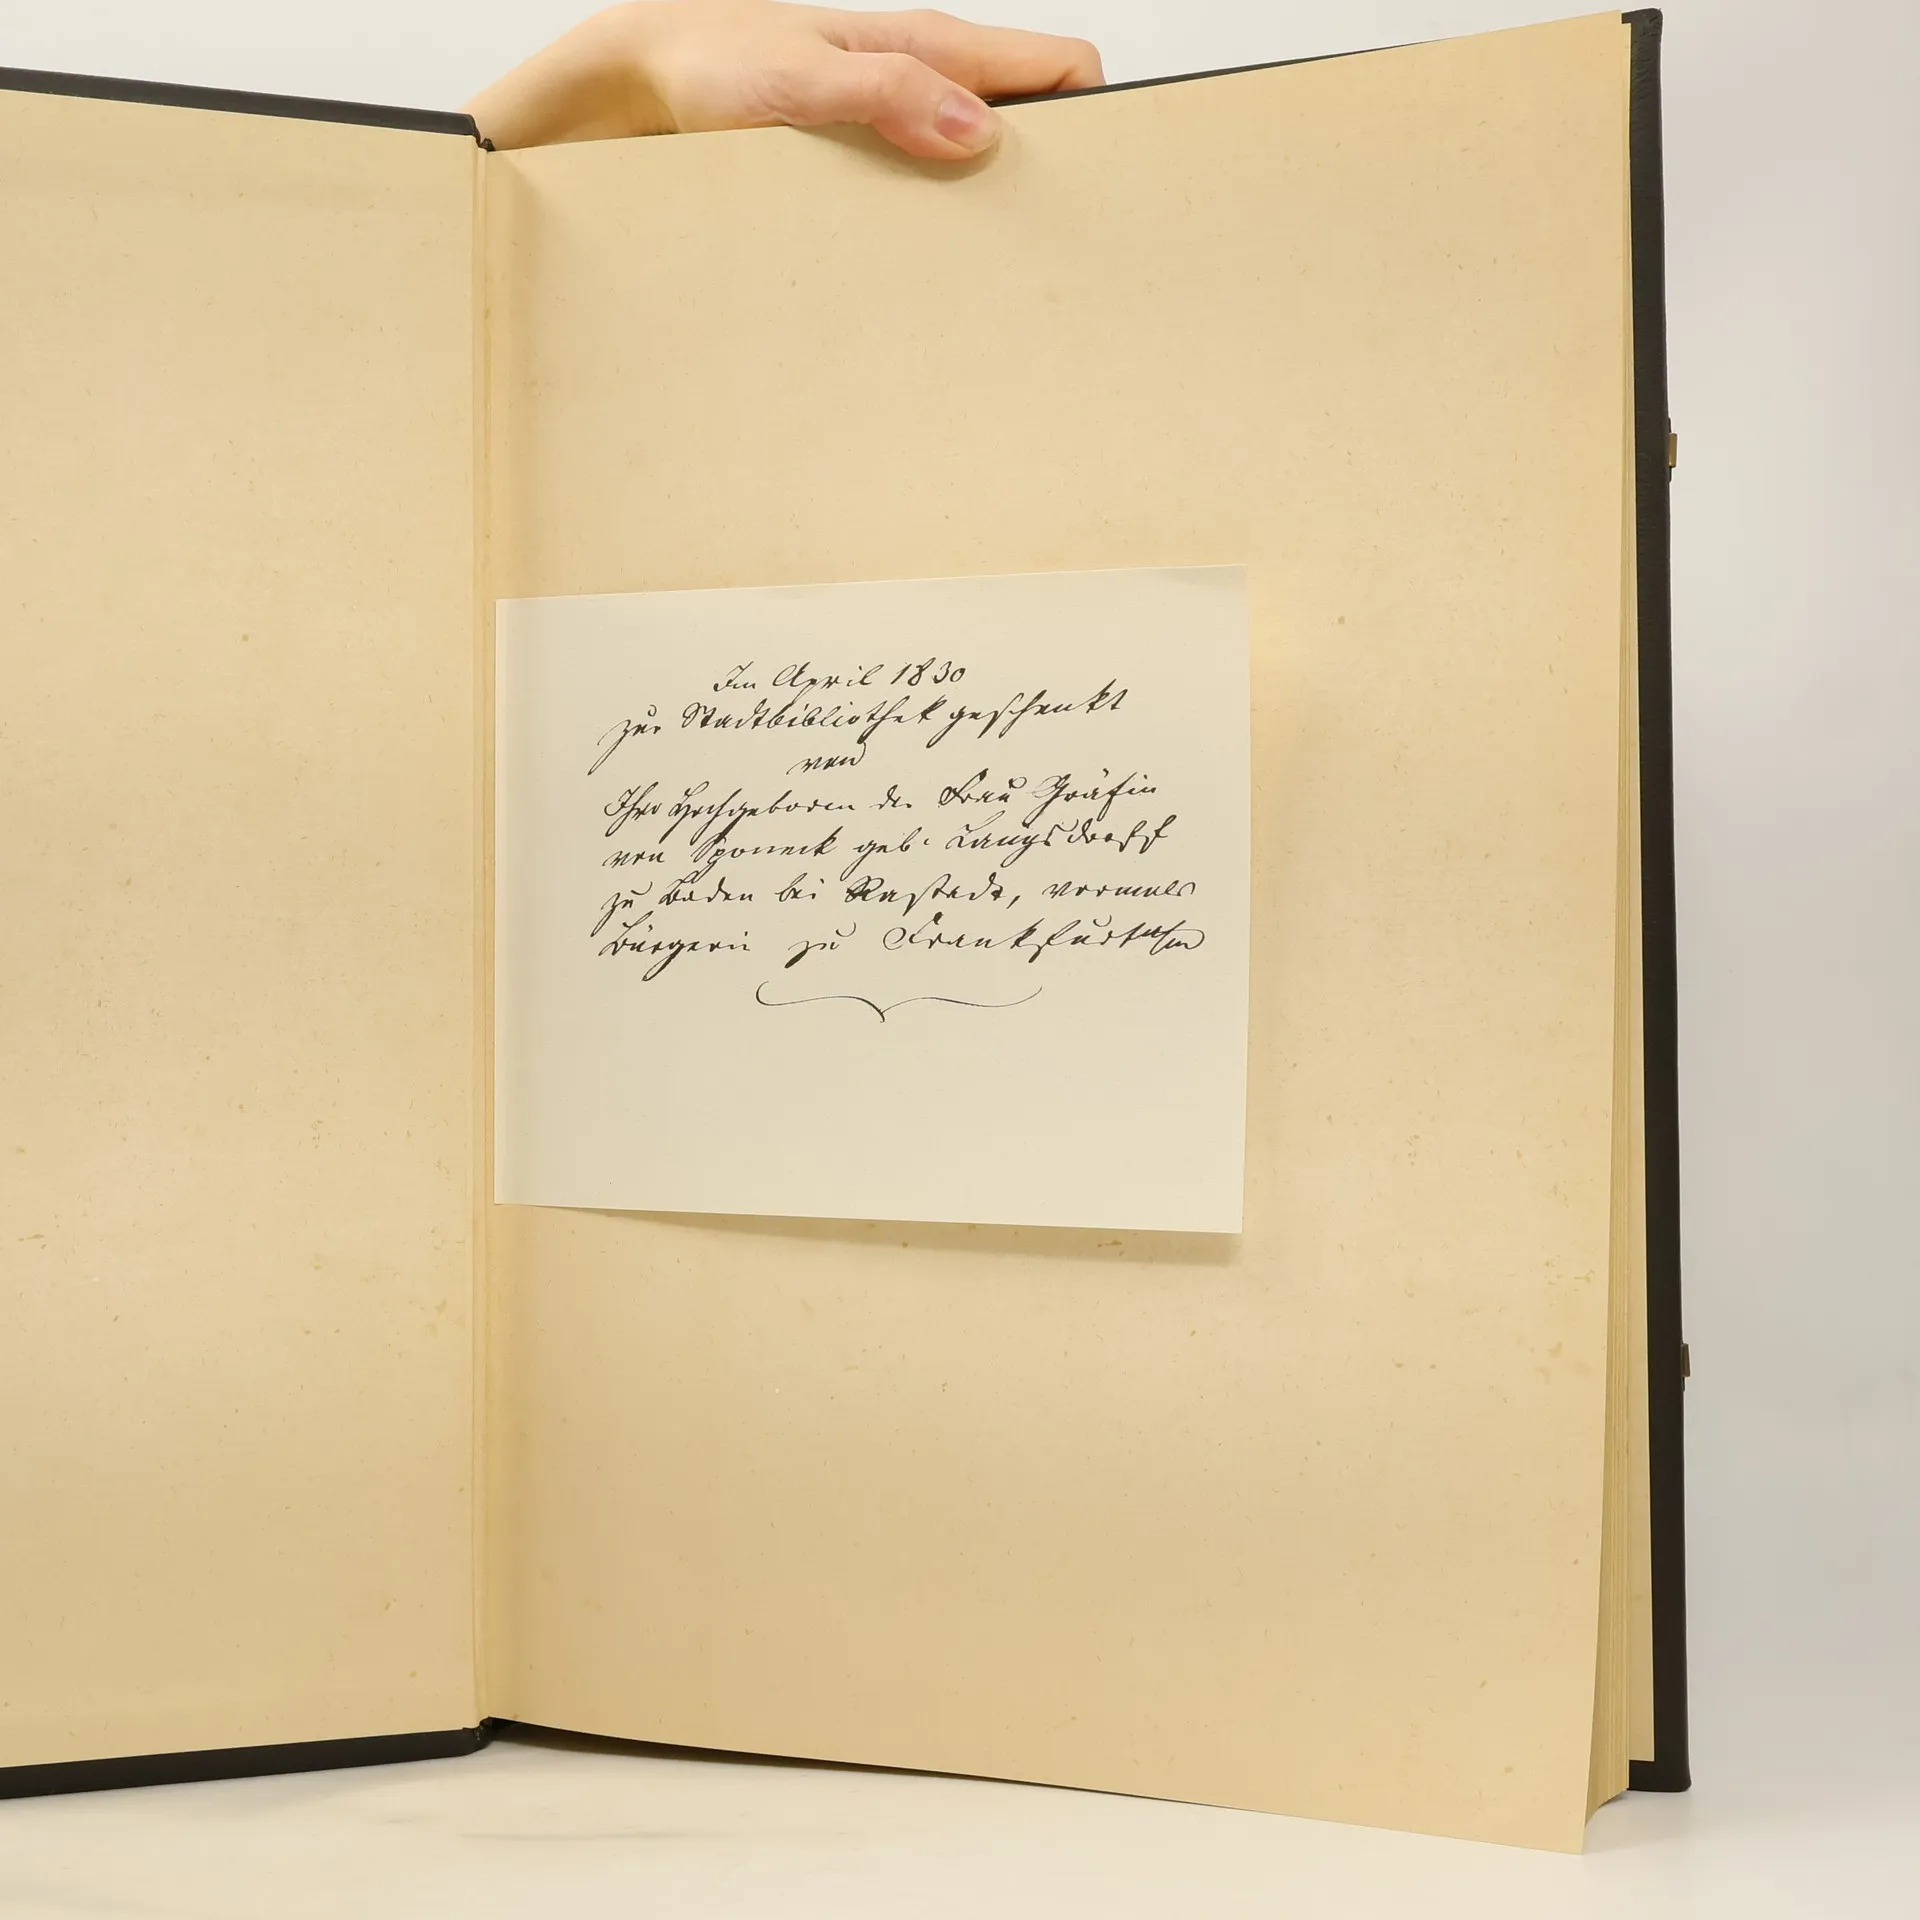 Im April 1830
zur Stadtbibliothek geschenkt
von
Ihro Hochgeboren der Frau Gräfin
von Sponeck geb. Langsdorff
zu Baden bei Rastadt, vormals
Bürgerin zu Frankfurt a/m